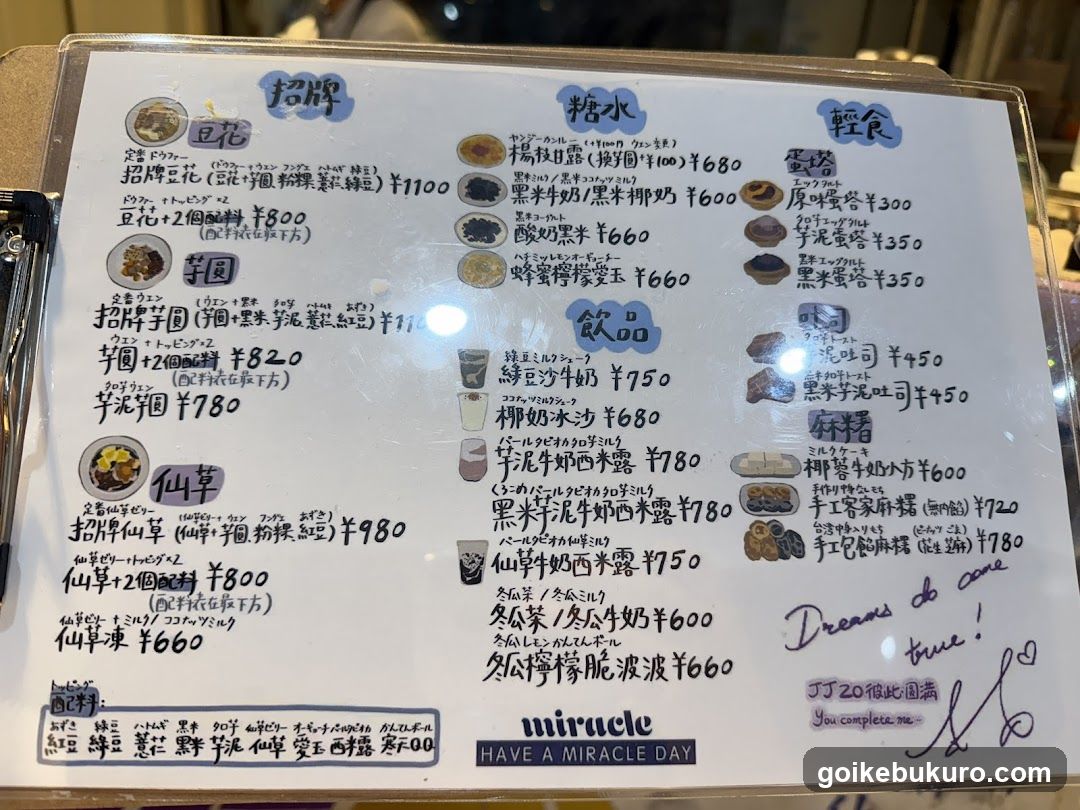 招牌
豆花
定番ドウファー
(ドウファー+ウェン フングェ ハトムギ 緑豆)
招牌豆花(豆花+芋圓.粉粿.薏仁.綠豆)¥1100
ドウファー+トッピング×2
豆花+2個配料 ¥800
(配料表在最下方)
芋圓
定番ウェン
(ウェン+黒米 タロ芋 ハトムギ あずき)
招牌芋圓(芋圓+黑米.芋泥.薏仁.紅豆)¥110
ウェン+トッピング×2
芋圓+2個配料 ¥820
(配料表在最下方)
タロ芋ウェン
芋泥芋圓 ¥780
仙草
定番仙草ゼリー
(仙草ゼリー+ウェン フングェ あずき)
招牌仙草(仙草+芋圓.粉粿.紅豆)¥980
仙草ゼリー+トッピング×2
仙草+2個配料 ¥800
(配料表在最下方)
仙草ゼリー+ミルク/ココナッツミルク
仙草凍 ¥660
トッピング
配料:
あずき 緑豆 ハトムギ 黒米 タロ芋 仙草ゼリー オーギョーチ パールタピオカ かんてんボール
紅豆 綠豆 薏仁 黑米 芋泥 仙草 愛玉 西米露 寒天QQ
糖水
ヤンジーカンルー (+¥100円 ウェン変更)
楊枝甘露(換芋圓+¥100)¥680
黒米ミルク/黒米ココナッツミルク
黑米牛奶/黑米椰奶 ¥600
黒米ヨーグルト
酸奶黑米 ¥660
ハチミツレモンオーギョーチー
蜂蜜檸檬愛玉 ¥660
飲品
緑豆ミルクシェーク
綠豆沙牛奶 ¥750
ココナッツミルクシェーク
椰奶冰沙 ¥680
パールタピオカタロ芋ミルク
芋泥牛奶西米露 ¥780
くろごめパールタピオカタロ芋ミルク
黑米芋泥牛奶西米露 ¥780
パールタピオカ仙草ミルク
仙草牛奶西米露 ¥750
冬瓜茶/冬瓜ミルク
冬瓜茶/冬瓜牛奶 ¥600
冬瓜レモンかんてんボール
冬瓜檸檬脆波波 ¥660
miracle
HAVE A MIRACLE DAY
輕食
蛋塔
エッグタルト
原味蛋塔 ¥300
タロ芋エッグタルト
芋泥蛋塔 ¥350
黒米エッグタルト
黑米蛋塔 ¥350
吐司
タロ芋トースト
泥吐司 ¥450
黒米タロ芋トースト
黑米芋泥吐司 ¥450
麻糬
ミルクケーキ
椰蓉牛奶小方 ¥600
手作り中身なしもち
手工客家麻糬(無内餡)¥720
台湾中身入りもち (ピーナッツ ごま)
手工包餡麻糬(花生 芝麻)¥780
Dreams do come
true!
JJ20 彼此圓滿
You complete me
goikebukuro.com